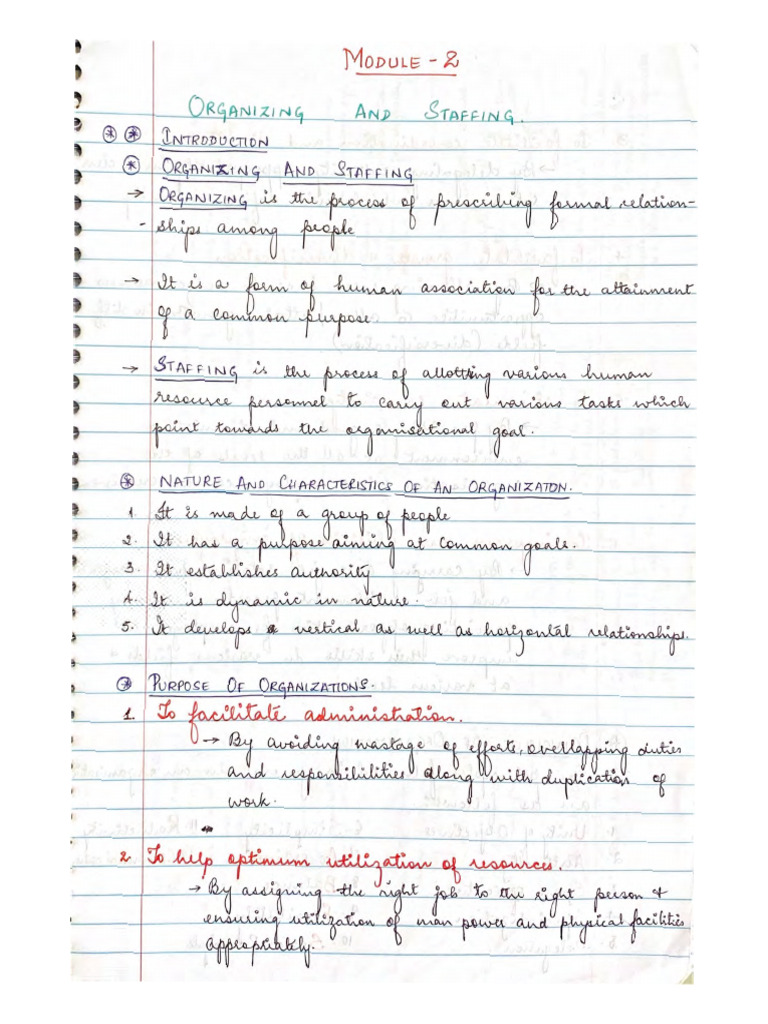 MODULE - 2
ORGANIZING AND STAFFING.
INTRODUCTION
ORGANIZING AND STAFFING
→ ORGANIZING is the process of prescribing formal relation-
- ships among people
→ It is a form of human association for the attainment
of a common purpose
→ STAFFING is the process of allotting various human
resource personnel to carry out various tasks which
point towards the organisational goal.
NATURE AND CHARACTERISTICS OF AN ORGANIZATON.
1. It is made of a group of people
2. It has a purpose aiming at common goals.
3. It establishes authority
4. It is dynamic in nature.
5. It develops vertical as well as horizontal relationships.
PURPOSE OF ORGANIZATIONS.
1. To facilitate administration.
→ By avoiding wastage of efforts, overlapping duties
and responsibilities along with duplication of
work.
2 To help optimum utilization of resources.
→ By assigning the right job to the right person &
ensuring utilization of man power and physical facilities
appropriately.